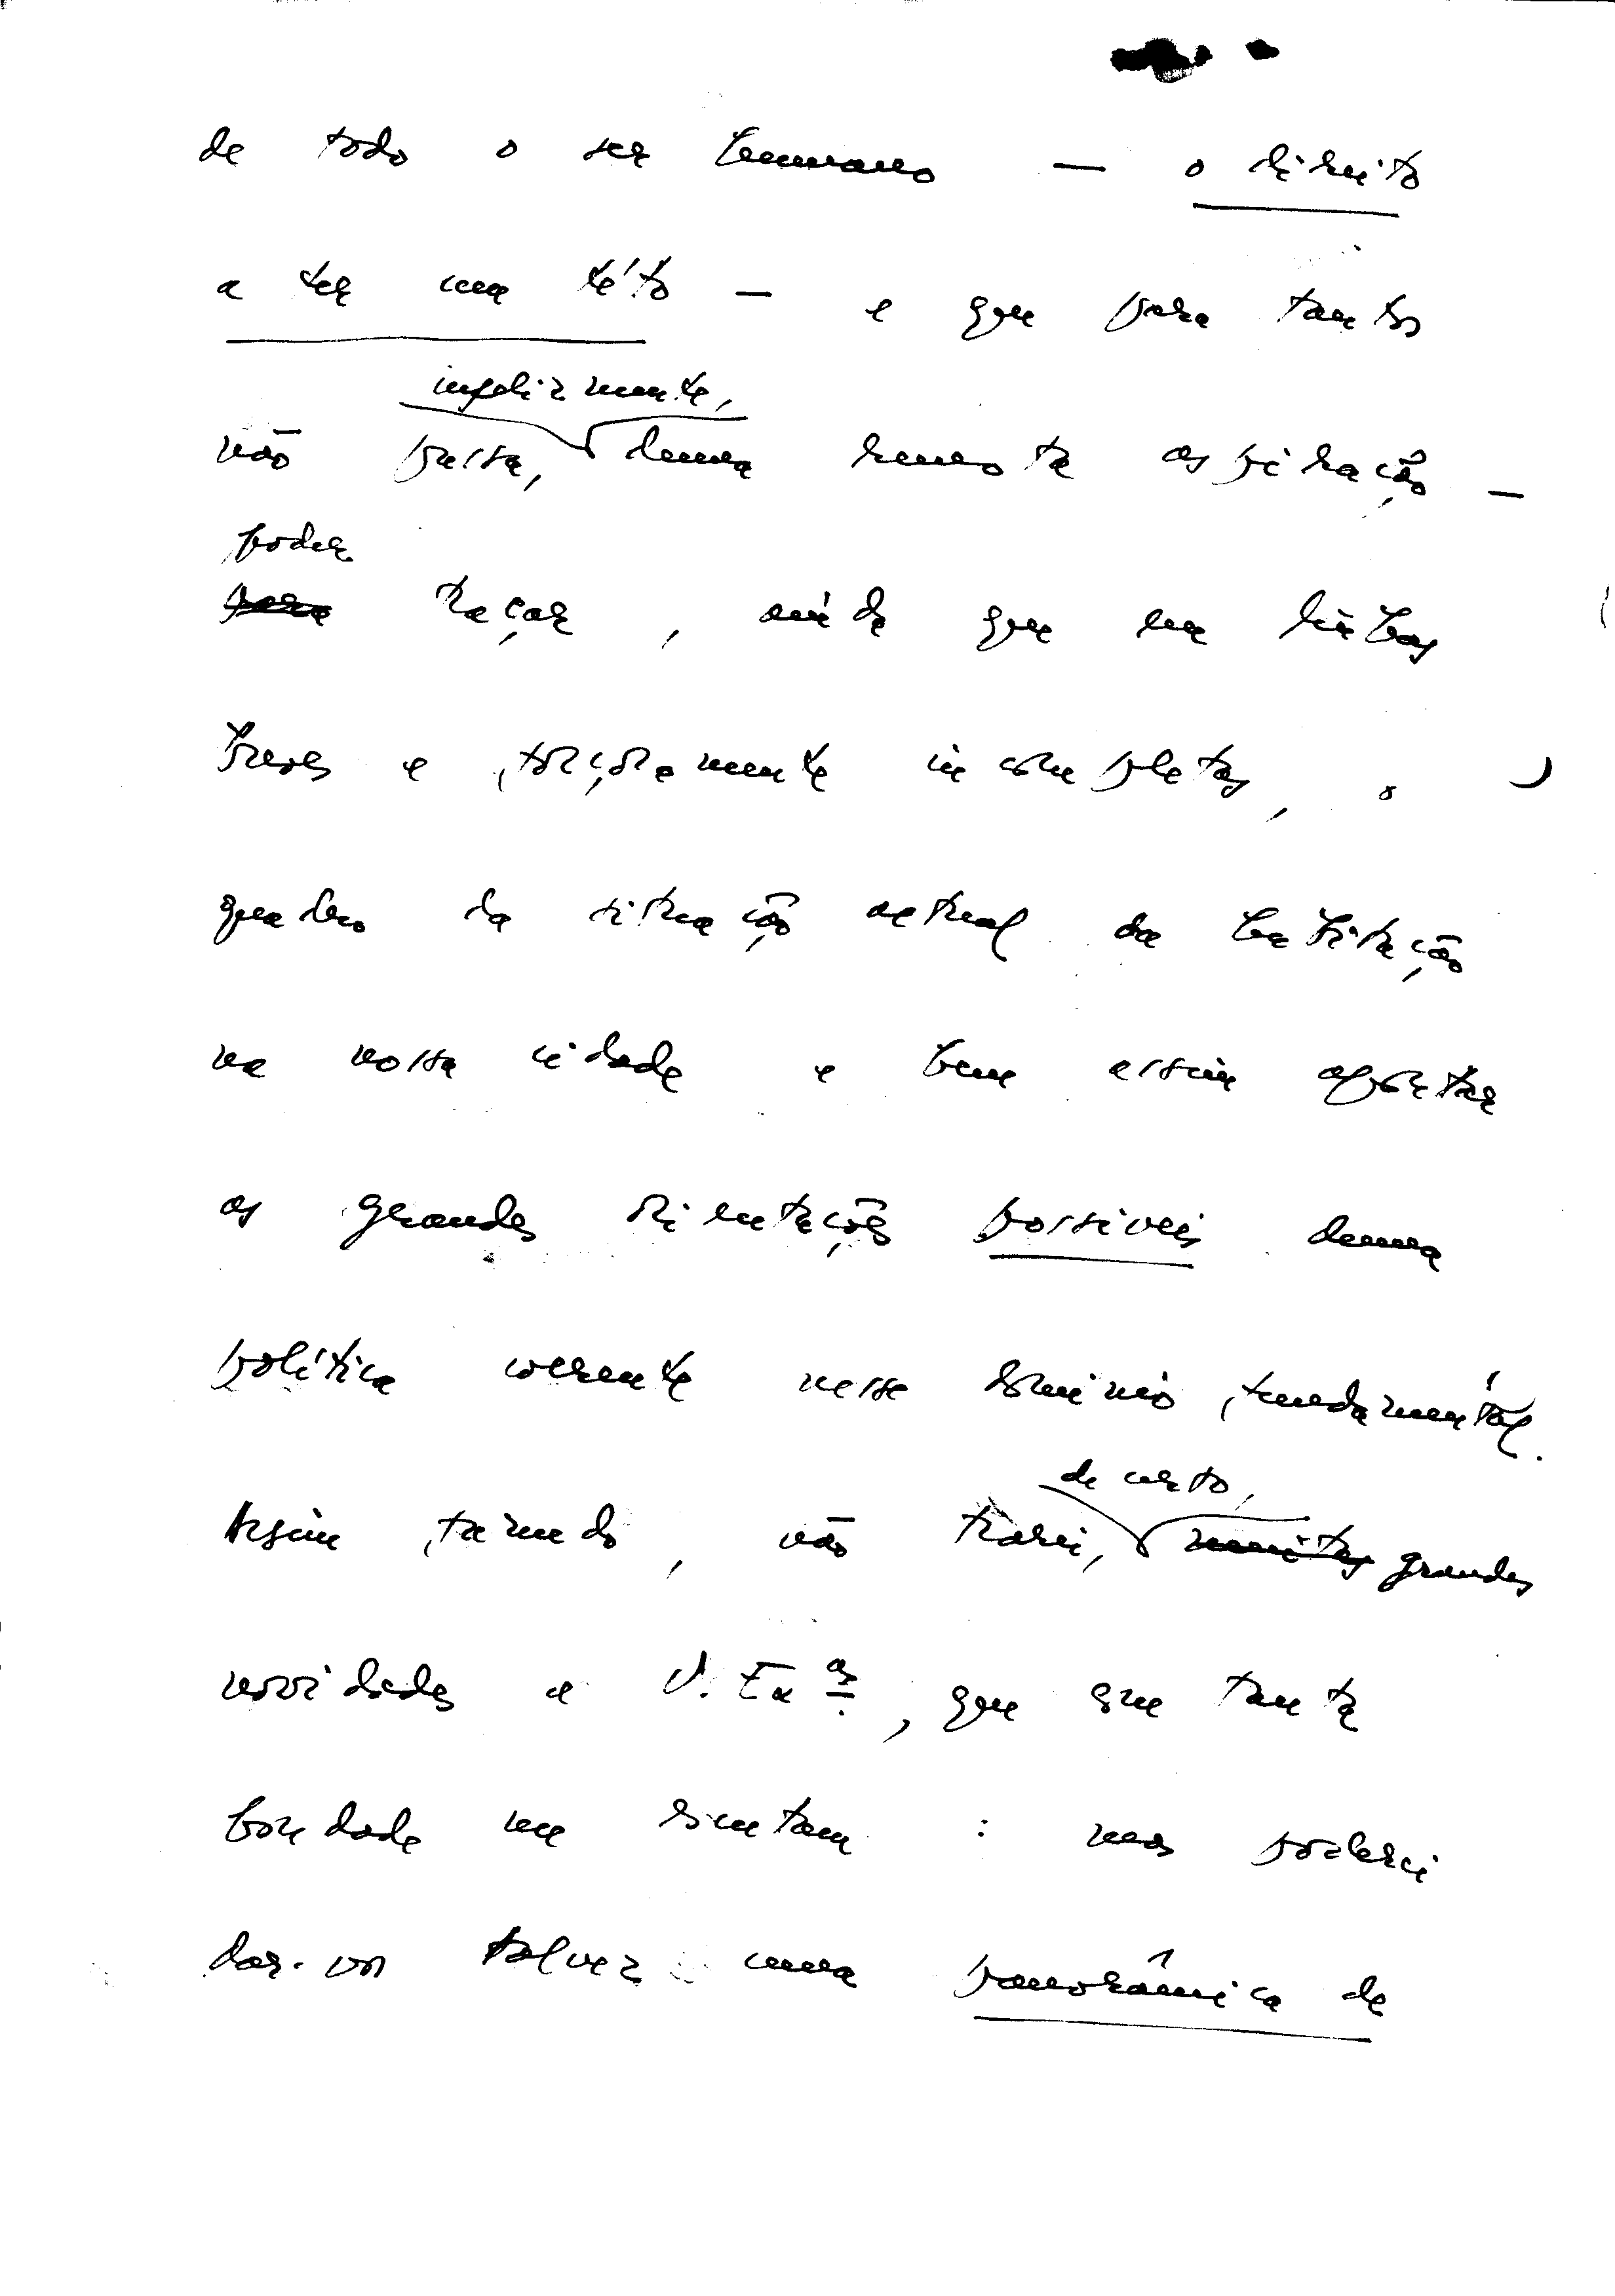 de todo o ser humano — o direito
a ter um této — e que para tantos
infelizmente,
não passa, duma remota aspiração —
poder
para traçar, ainda que em linhas
breves e forçosamente incompletas, o
quadro da situação actual da habitação
na nossa cidade e bem assim apontar
as grandes orientações possiveis duma
política coerente nesse dominio fundamental.
de certo,
Assim sendo, não trarei, muitas grandes
novidades a V. Exas, que com tanta
bondade me escutam: mas poderei
dar-vos talvez uma panorâmica de